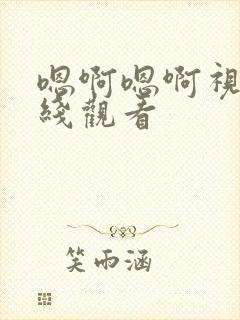 嗯啊嗯啊視
綫觀看
笑雨涵